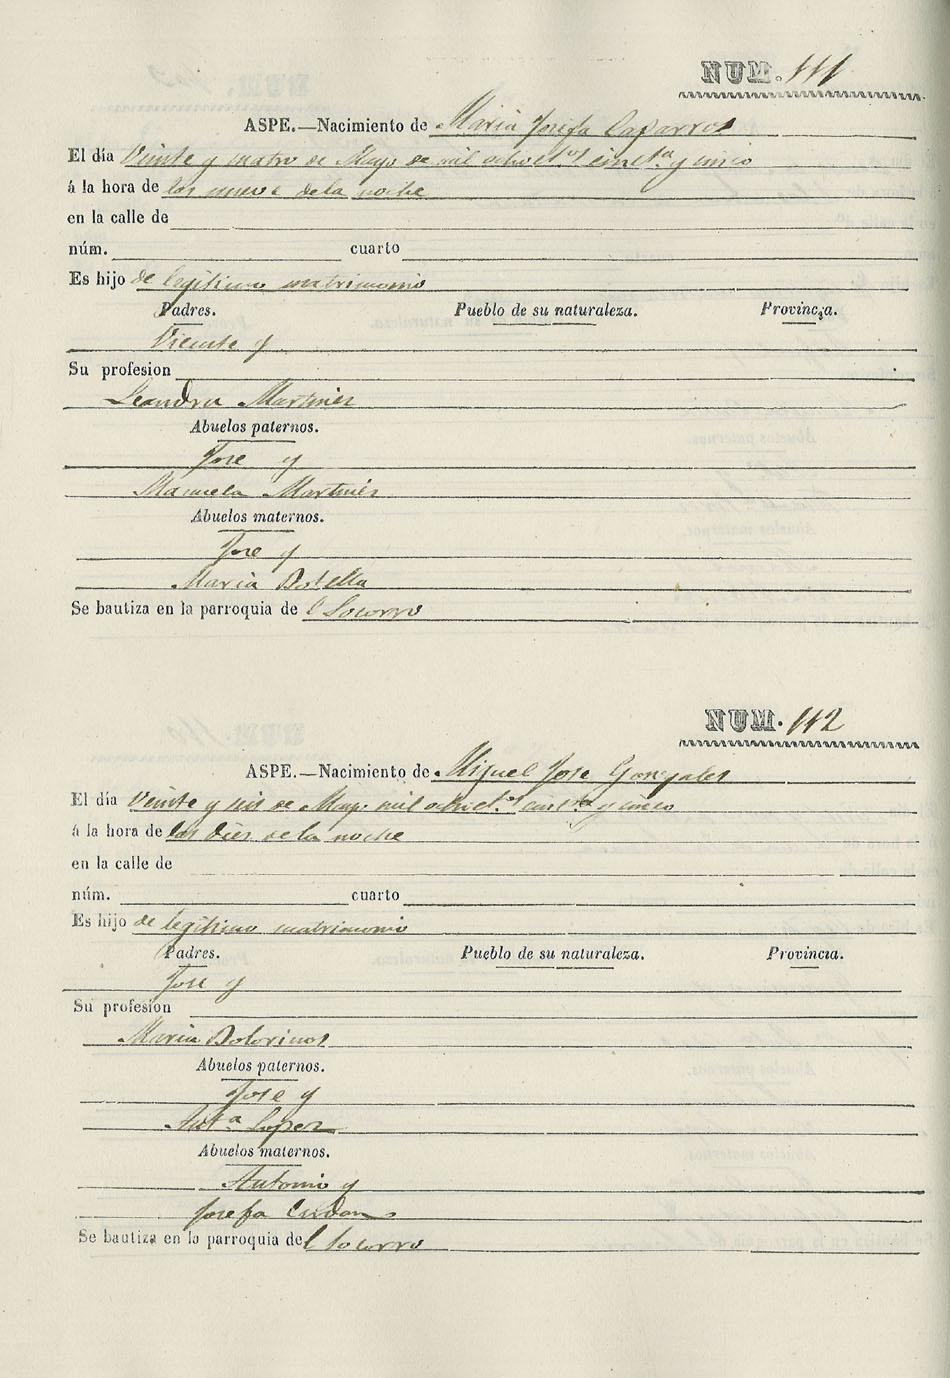 NUM. 111
ASPE.—Nacimiento de Maria Josefa Caparros
El día Veinte y cuatro de Mayo de mil ochoct.os cinct.a y cinco
á la hora de las nueve de la noche
en la calle de
núm. cuarto
Es hijo de legitimo matrimonio
Padres. Pueblo de su naturaleza. Provincia.
Vicente y
Su profesion
Leandra Martines
Abuelos paternos.
Jose y
Manuela Martines
Abuelos maternos.
Jose y
Maria Botella
Se bautiza en la parroquia de l Socorro
NUM. 112
ASPE.—Nacimiento de Miguel Jose Gonzales
El día Veinte y seis de Mayo mil ochoct.os cinct.a y cinco
á la hora de las dies de la noche
en la calle de
núm. cuarto
Es hijo de legitimo matrimonio
Padres. Pueblo de su naturaleza. Provincia.
Jose y
Su profesion
Maria Bolorinos
Abuelos paternos.
Jose y
Ant.a Lopez
Abuelos maternos.
Antonio y
Josefa
Se bautiza en la parroquia de l Socorro